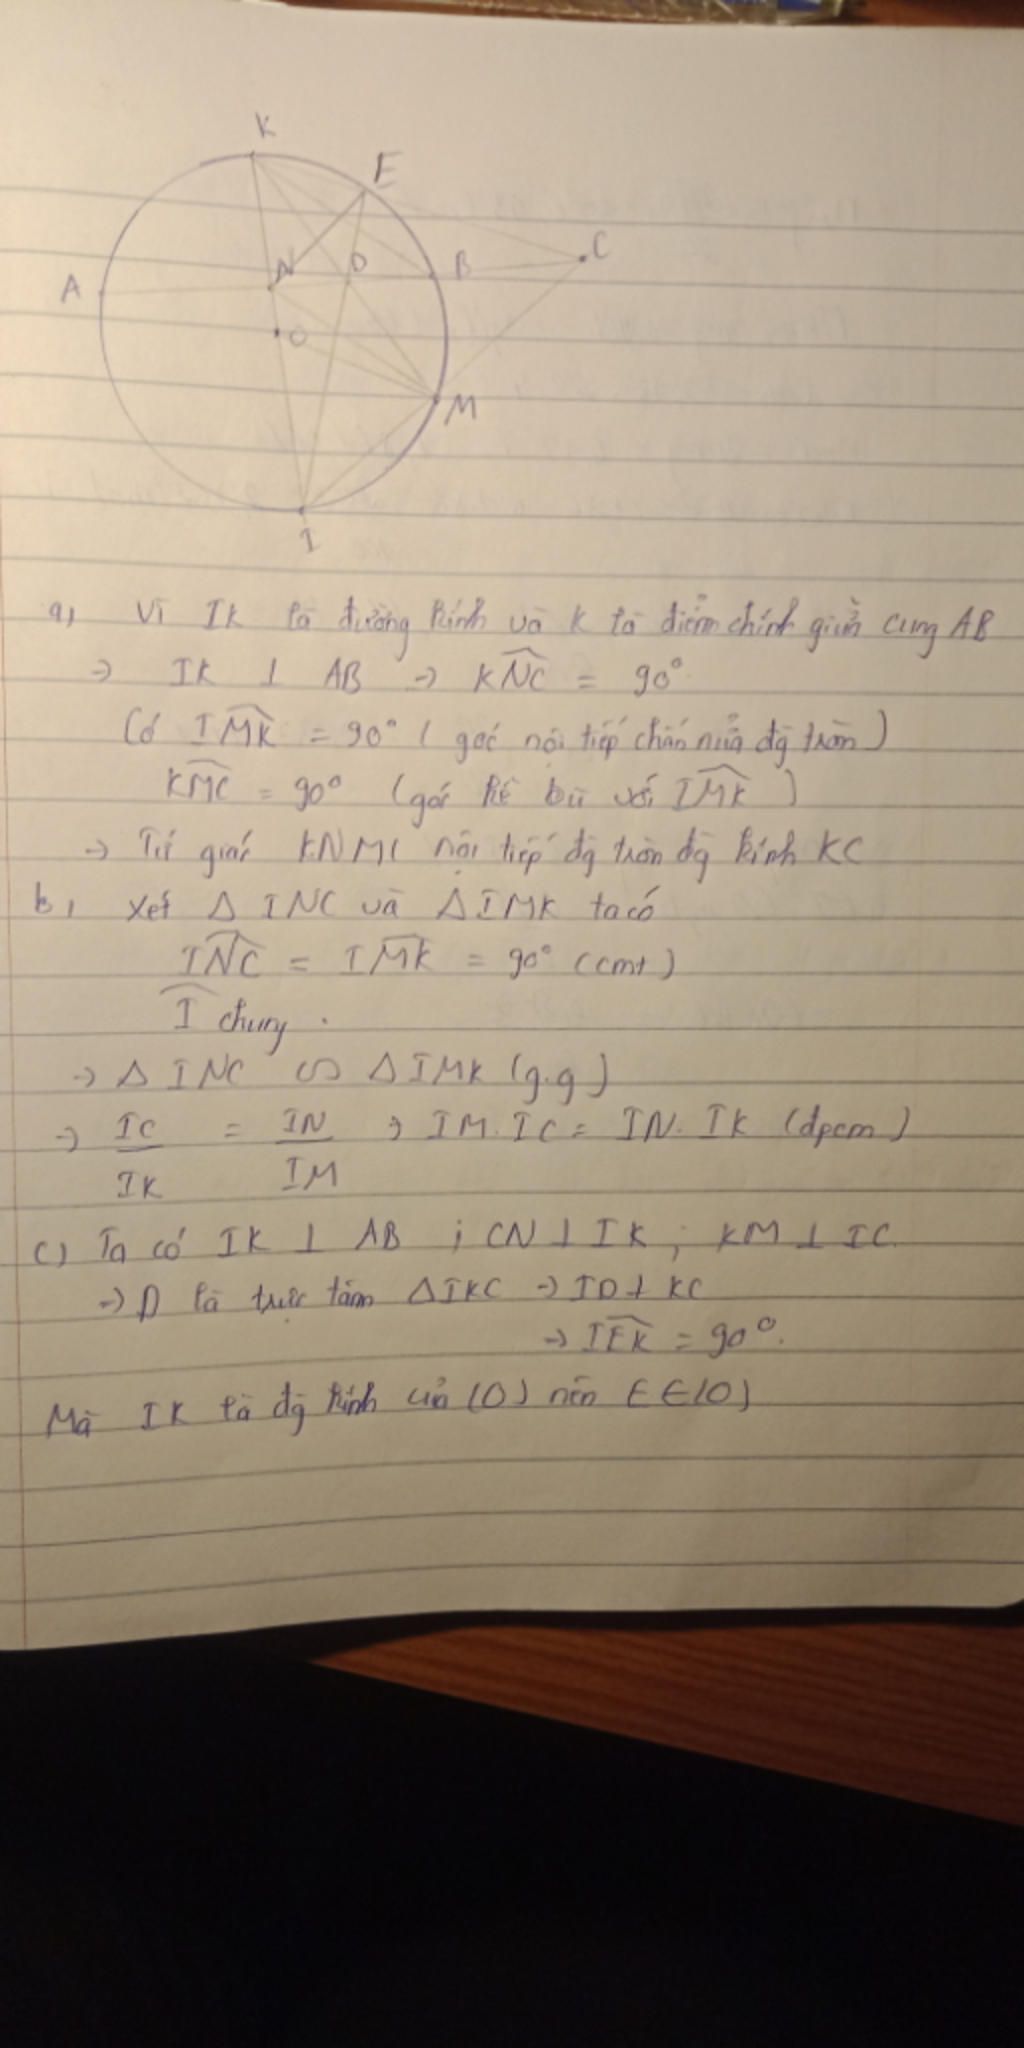 K
E
A
N
D
B
C
O
M
I
a, Vì IK là đường kính và K là điểm chính giữa cung AB
→ IK ⊥ AB → KNC = 90°
Có IMK = 90° ( góc nội tiếp chắn nửa đg tròn )
KMC = 90° (góc kề bù với IMK )
→ Tứ giác KNMC nội tiếp đg tròn đg kính KC
b, xét Δ INC và Δ IMK ta có
INC = IMK = 90° (cmt)
I chung .
→ Δ INC ∽ Δ IMK (g.g)
→ IC/IK = IN/IM → IM. IC = IN. IK (đpcm)
c) Ta có IK ⊥ AB ; CN ⊥ IK ; KM ⊥ IC
→ D là trực tâm ΔIKC → ID ⊥ KC
→ IEK = 90°.
Mà IK là đg kính của (O) nên E ∈ (O)